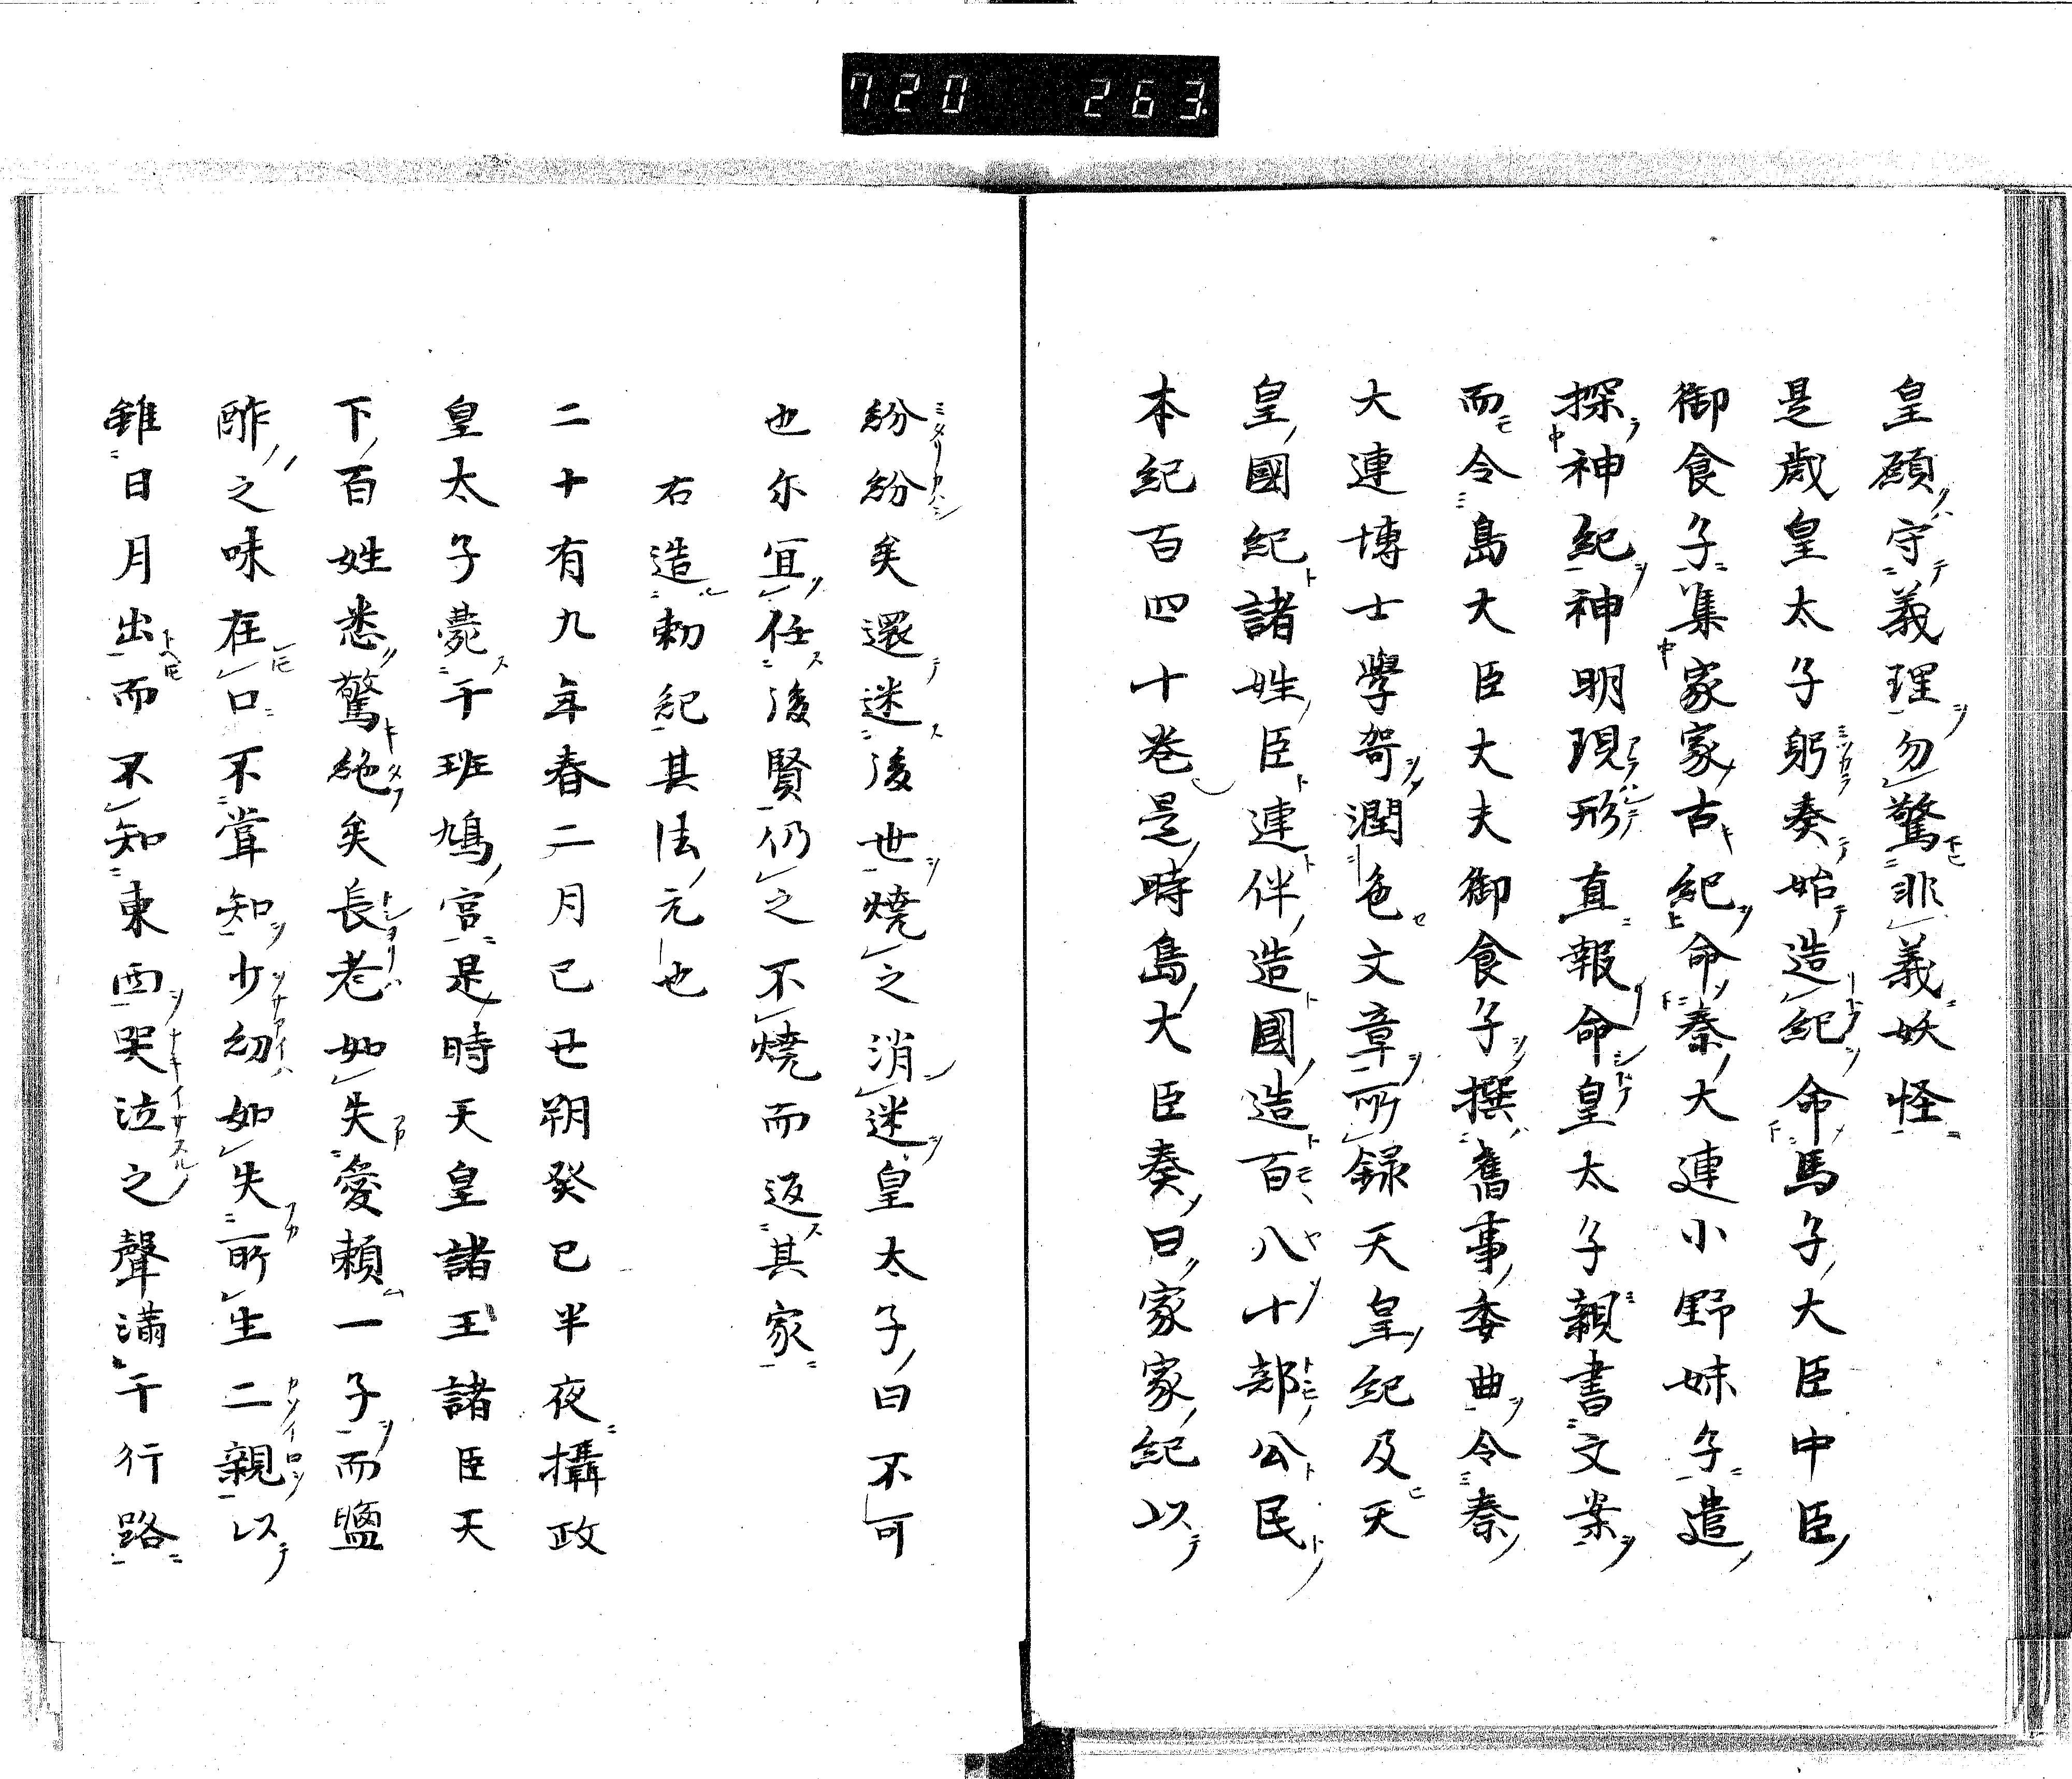 720 263
皇頋守義理勿驚非義妖怪
是歳皇太子躬奏始造紀命馬子大臣中臣
御食子集家家古紀命秦大連小野妹子遣
探神紀神明現形直報命皇太子親書文案
而令島大臣大夫御食子撰舊事委曲令秦
大連博士學哿潤色文章所録天皇紀及天
皇國紀諸姓臣連伴造國造百八十部公民
本紀百四十巻是時島大臣奏曰家家紀以
紛紛矣還迷後世燒之消迷皇太子曰不可
也尓冝任後賢仍之不燒而返其家
右造勅紀其法元也
二十有九年春二月己丑朔癸巳半夜攝政
皇太子薨于班鳩宮是時天皇諸王諸臣天
下百姓悉驚絶矣長老如失愛頼一子而鹽
酢之味在口不甞知少幼如失所生二親以
雖日月出而不知東西哭泣之聲滿于行路